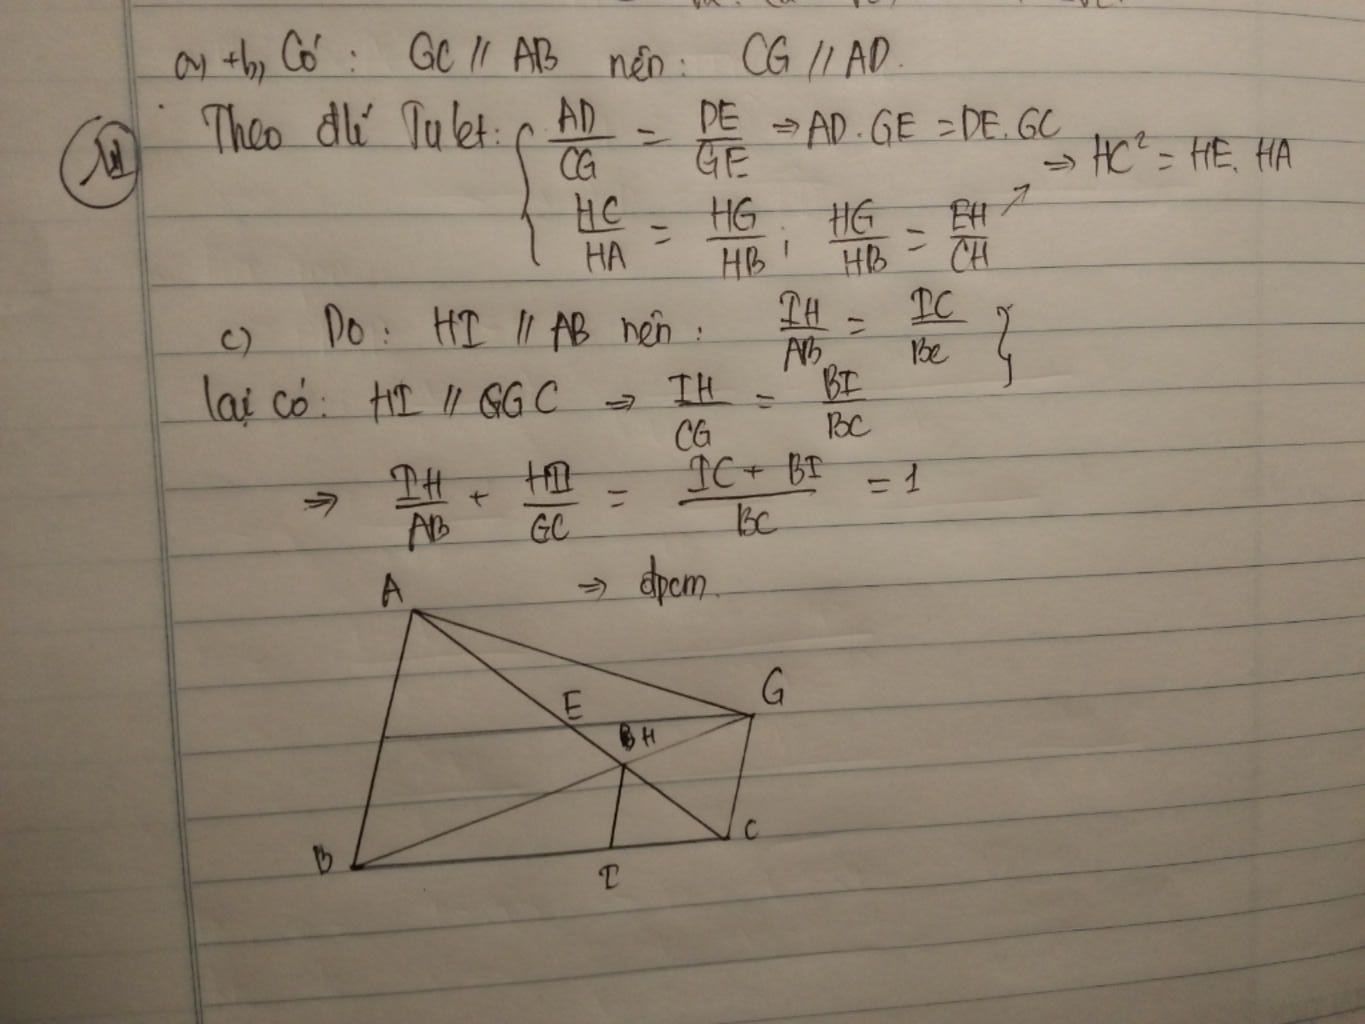 a, + b, Có : GC // AB nên : CG // AD.
Theo đlí Talet: { AD/CG = DE/GE ⇒ AD . GE = DE . GC
HC/HA = HG/HB ; HG/HB = EH/CH ⇒ HC² = HE . HA
c) Do : HI // AB nên : IH/AB = IC/BC }
lại có : HI // GGC ⇒ IH/CG = BI/BC
⇒ IH/AB + HI/GC = (IC + BI)/BC = 1
⇒ đpcm.
A
G
E
H
B
C
I